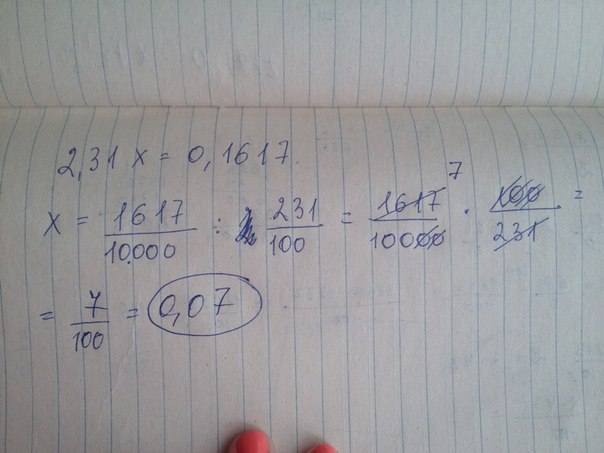 2,31 x = 0,1617.
x = 1617/10000 : 231/100 = 1617/10000 7 · 100/231 =
= 7/100 = 0,07